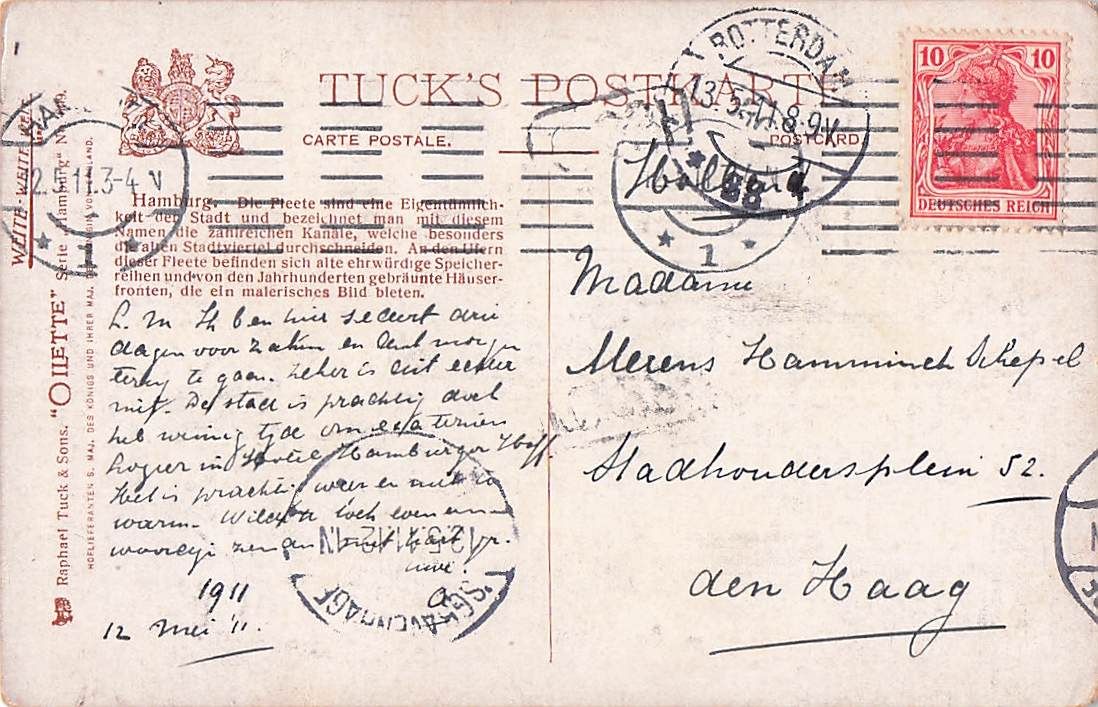 TUCK'S POSTKARTE
CARTE POSTALE.
POSTCARD.
WEITE-WEITE
Raphael Tuck & Sons. "OILETTE" Serie „Hamburg“ No.
HOFLIEFERANTEN S. MAJ. DES KÖNIGS UND IHRER MAJ. DER KÖNIGIN VON ENGLAND.
Hamburg. Die Fleete sind eine Eigentümlich-
keit der Stadt und bezeichnet man mit diesem
Namen die zahlreichen Kanäle, welche besonders
die alten Stadtviertel durchschneiden. An den Ufern
dieser Fleete befinden sich alte ehrwürdige Speicher-
reihen und von den Jahrhunderten gebräunte Häuser-
fronten, die ein malerisches Bild bieten.
L. M Ik ben hier sedert drie
dagen voor zaken en denk morgen
terug te gaan. Zeker is dit echter
niet. De stad is prachtig doch
heb weinig tijd om
Logeer in Hotel Hamburger Hoff
Het is prachtig weer en niet te
warm. Wilt U toch even een
woordje zenden met hart. gr.
uwe.
1911
12 Mei '11.
ROTTERDAM
13.5.11.8-9V
1
2.5.11.3-4 V
1
'S GRAVENHAGE
10 10
DEUTSCHES REICH
Holland
Madame
Merens Hamminck Schepel
Stadhoudersplein 52.
den Haag